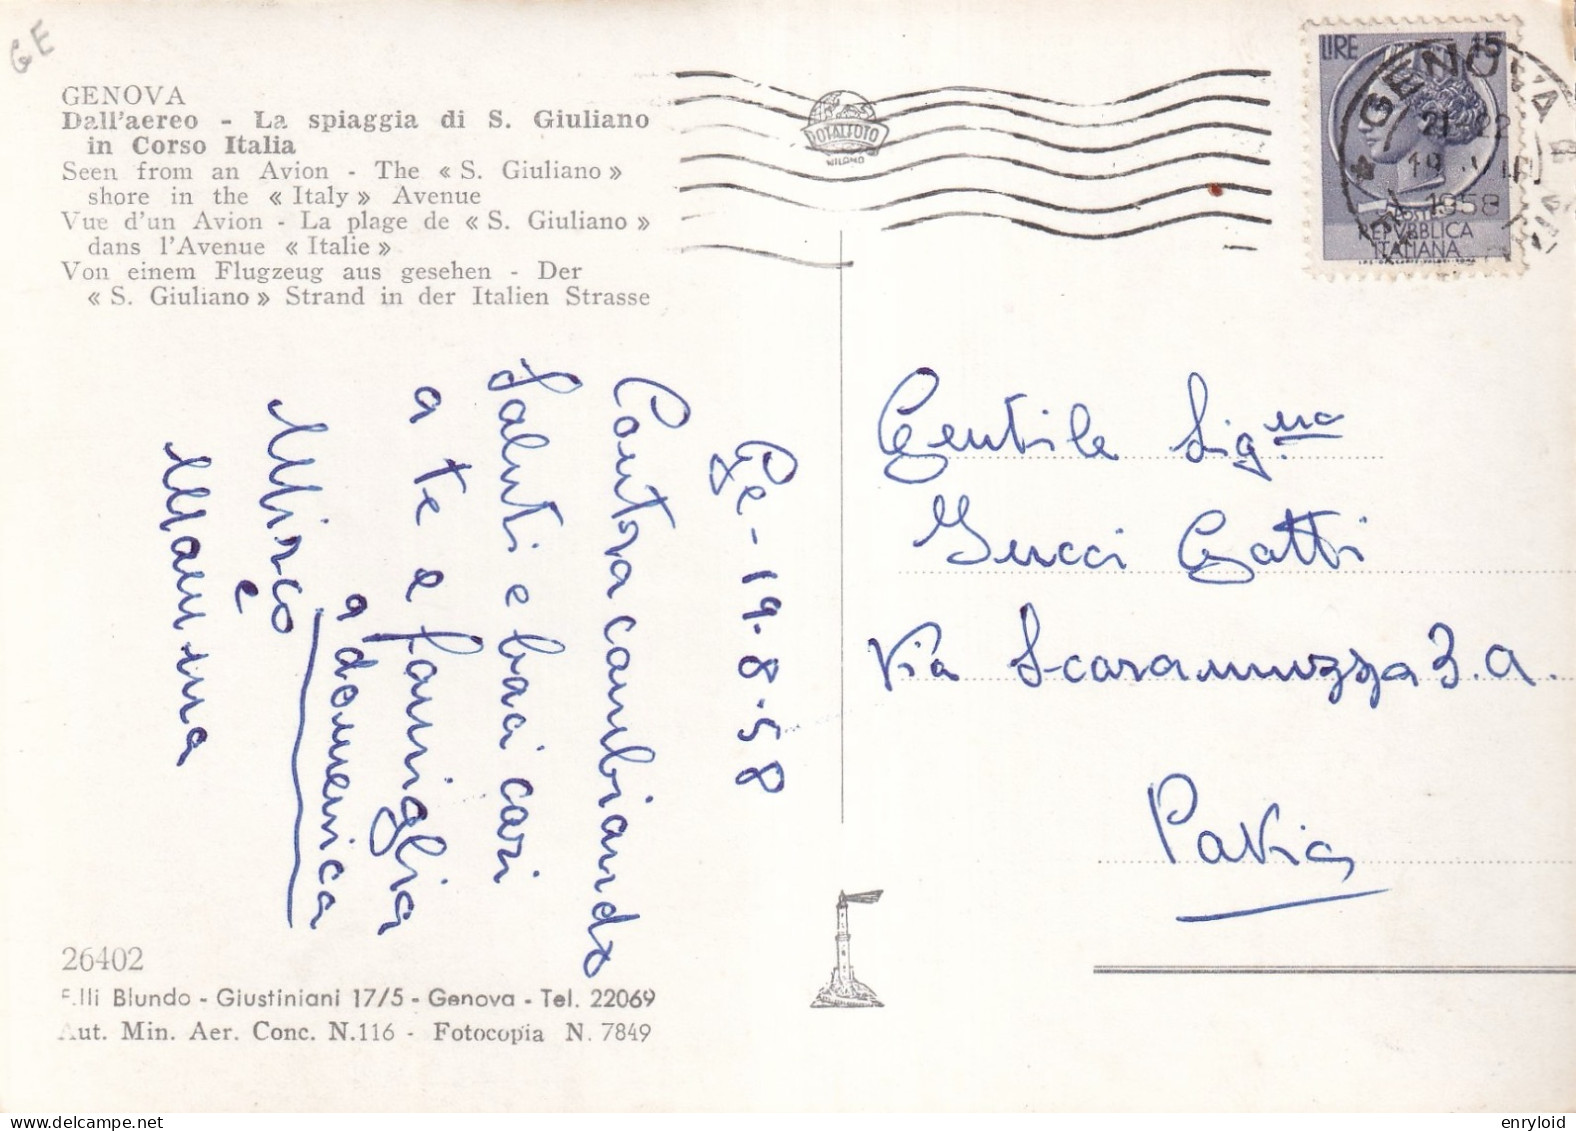 GE
GENOVA
Dall'aereo - La spiaggia di S. Giuliano
in Corso Italia
Seen from an Avion - The « S. Giuliano »
shore in the « Italy » Avenue
Vue d'un Avion - La plage de « S. Giuliano »
dans l'Avenue « Italie »
Von einem Flugzeug aus gesehen - Der
« S. Giuliano » Strand in der Italien Strasse
ROTALFOTO
MILANO
LIRE 15
POSTE
REPVBBLICA
ITALIANA
GENOVA
21-22
19
1958
Ge - 19.8.58
Contraccambiando
Saluti e baci cari
a te e famiglia
a domenica
Mirco
e
Mamma
Gentile Sig.na
Giucci Gatti
Via Scaramuzza 3.a.
Pavia
26402
F.lli Blundo - Giustiniani 17/5 - Genova - Tel. 22069
Aut. Min. Aer. Conc. N.116 - Fotocopia N. 7849
enryloid